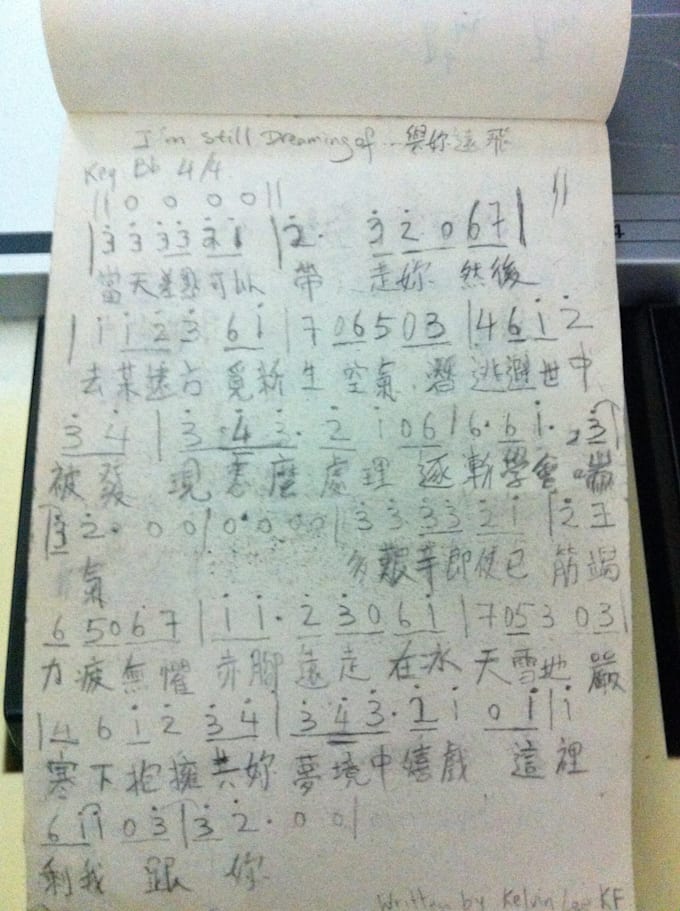 I'm Still Dreaming of.. 與妳遠飛
Key Bb 4/4
|| 0 0 0 0 ||
| 3̇ 3̇ 3̇ 3̇ 2̇ 1̇ | 2̇ · 3̇ 2̇ 0 6 7 |
當天差點可以 帶 走妳 然後
| 1̇ 1̇ 2̇ 3̇ 6 1̇ | 7 0 6 5 0 3 | 4 6 1̇ 2̇
去某遠古 覓新生 空氣 暫逃避世中
3̇ 4̇ | 3̇ 4̇ 3̇ · 2̇ 1̇ 0 6 | 6 · 6 1̇ · 2̇ 3̇
被發 現怎麼處理 逐漸學會喘
| 3̇ 2̇ · 0 0 | 0 0 0 0 | 3̇ 3̇ 3̇ 3̇ 2̇ 1̇ | 2̇
氣 多艱辛即使已 筋竭
6 5 0 6 7 | 1̇ 1̇ · 2̇ 3̇ 0 6 1̇ | 7 0 5 3 0 3 |
力疲無懼 赤腳遠走 在冰天雪地 嚴
| 4 6 1̇ 2̇ 3̇ 4̇ | 3̇ 4̇ 3̇ · 2̇ 1̇ 0 1̇ | 1̇
寒下抱擁共妳 夢境中嬉戲 這裡
6 1̇ 1̇ 0 3̇ | 3̇ 2̇ · 0 0 |
剩我 跟 妳
Written by Kelvin KF